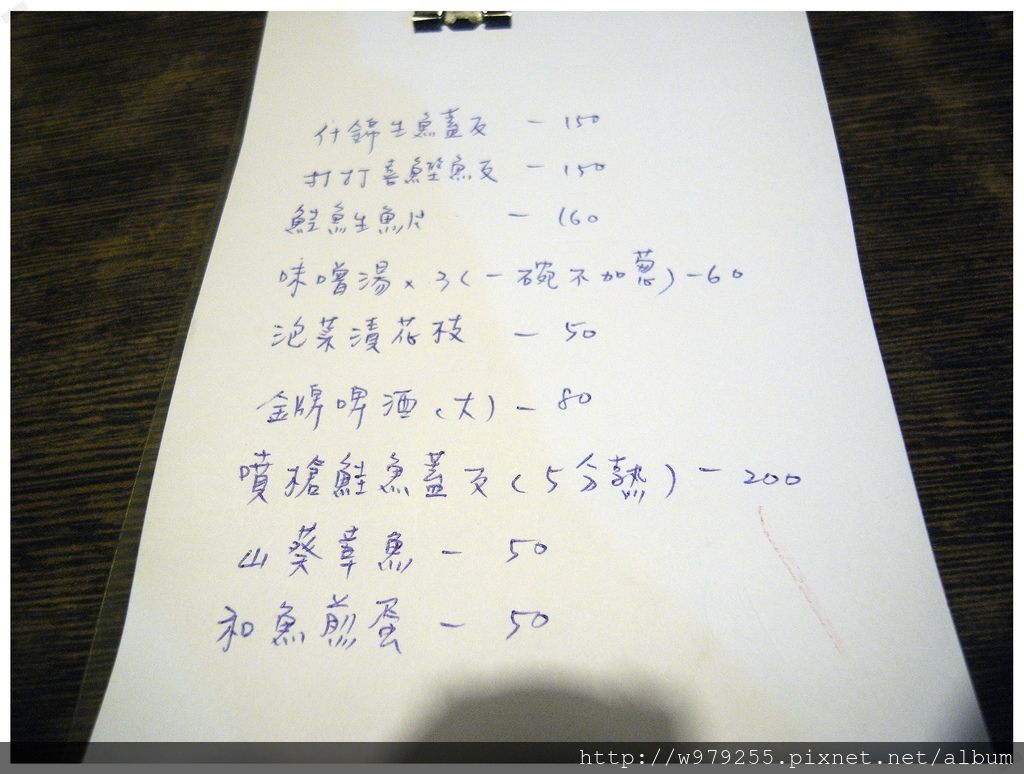 什錦生魚蓋反 - 150
打打喜鰹魚反 - 150
鮭魚生魚片 - 160
味噌湯 x 3 (一碗不加蔥) - 60
泡菜漬花枝 - 50
金牌啤酒 (大) - 80
噴槍鮭魚蓋反 (5分熟) - 200
山葵章魚 - 50
和魚煎蛋 - 50
http://w979255.pixnet.net/album